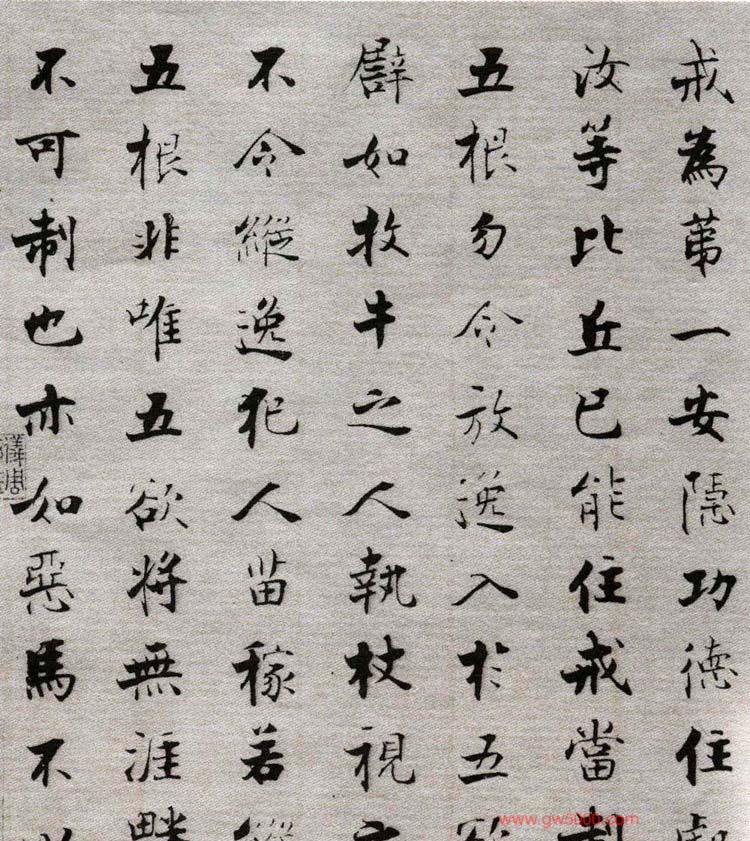 戒為苐一安隱功德住處
汝等比丘已能住戒當制
五根勿令放逸入於五欲
譬如牧牛之人執杖視之
不令縱逸犯人苗稼若縱
五根非唯五欲將無涯畔
不可制也亦如惡馬不